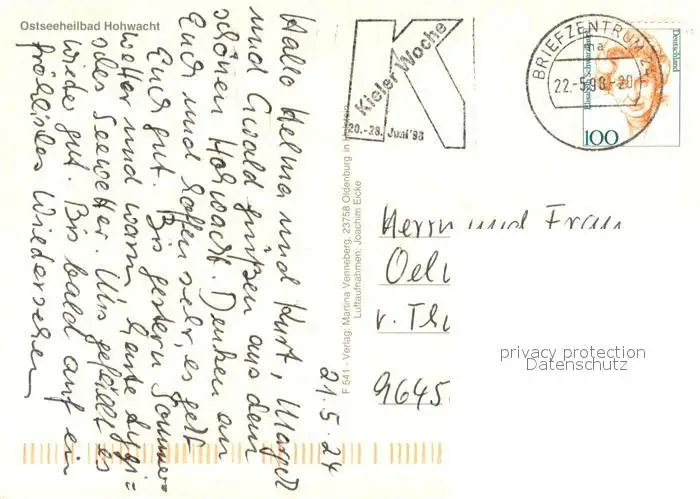 Ostseeheilbad Hohwacht
Hallo Helma und Kurt, Magret
und Ewald grüßen aus dem
schönen Hohwacht. Denken an
Euch und hoffen sehr, es geht
Euch gut. Bis gestern Sommer=
wetter und warm, heute typi=
sches Seewetter. Uns gefällt es
wieder gut. Bis bald auf ein
fröhliches Wiedersehen
21.5.24
F 541 · Verlag: Martina Venneberg, 23758 Oldenburg in
Luftaufnahmen: Joachim Eicke
Kieler Woche
20.-28. Juni '98
BRIEFZENTRUM 24
na
22.-5.98.-20
Deutschland
100
Herrn und Frau
Oel
v. Th
9645
privacy protection
Datenschutz